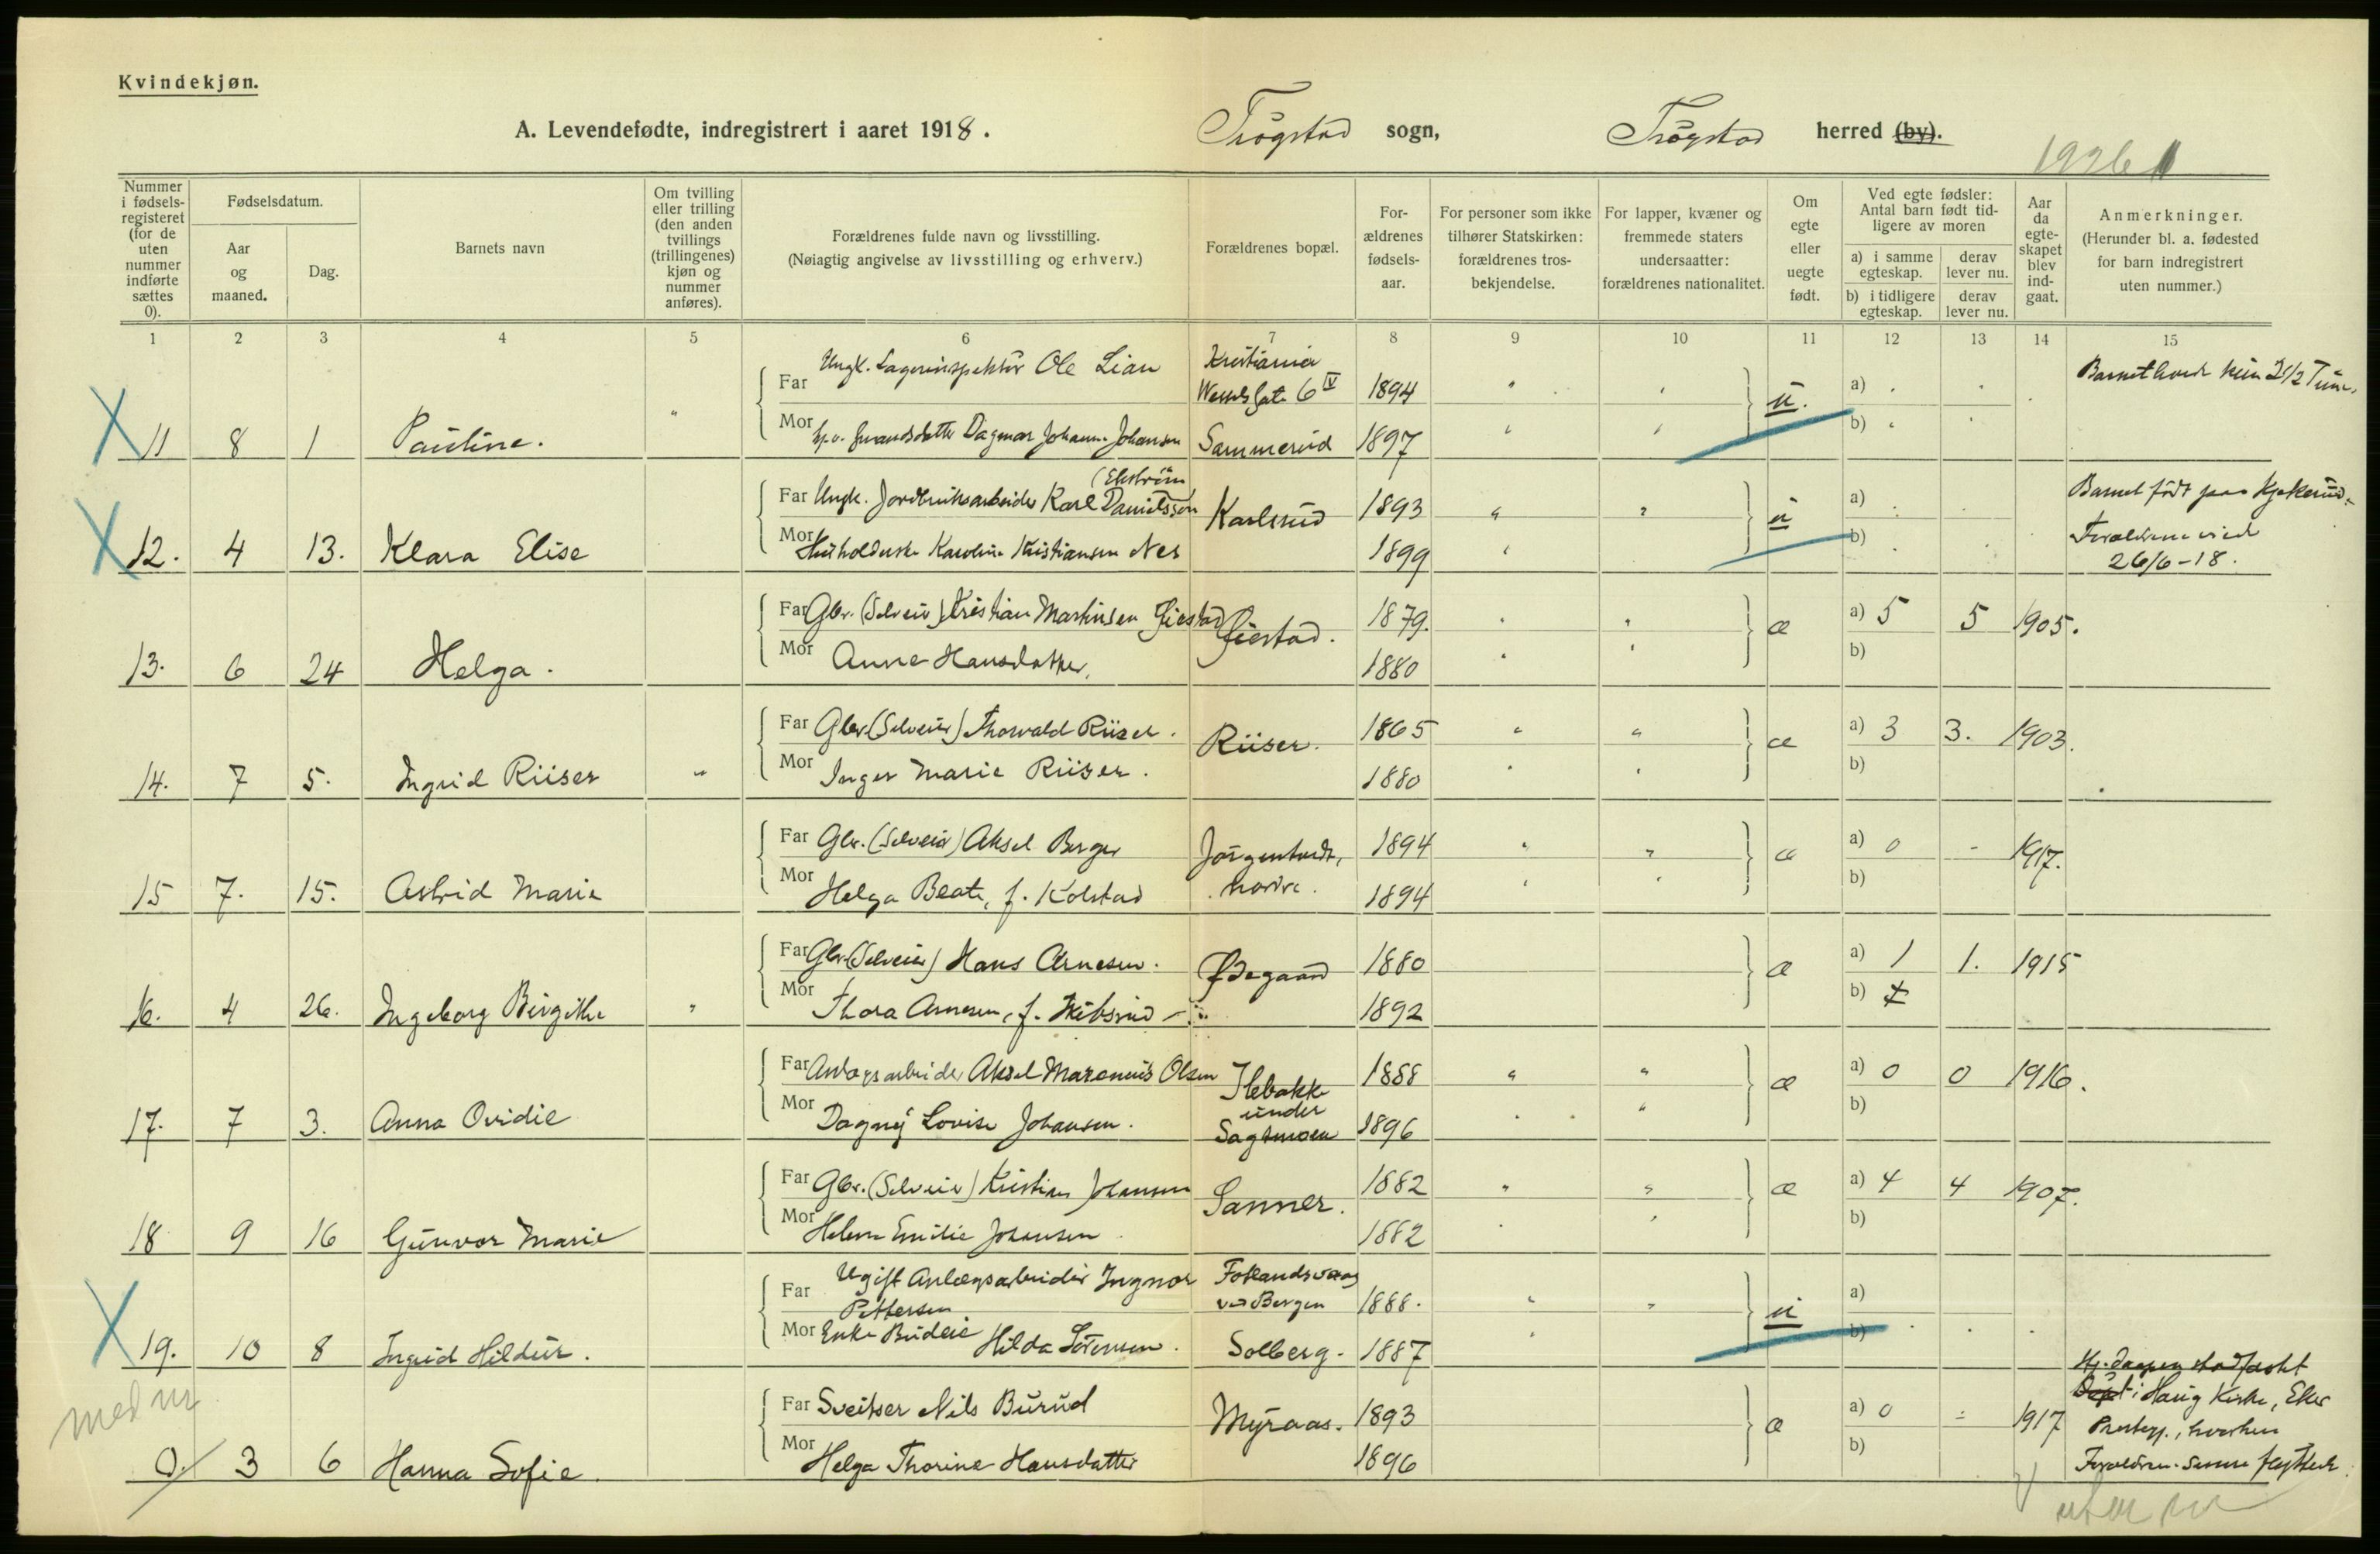 Kvindekjøn.
A. Levendefødte, indregistrert i aaret 1918. Trøgstad sogn, Trøgstad herred (by).
1926
Nummer i fødsels-registeret (for de uten nummer indførte sættes 0).
Fødselsdatum.
Aar og maaned.
Dag.
Barnets navn
Om tvilling eller trilling (den anden tvillings (trillingenes) kjøn og nummer anføres).
Forældrenes fulde navn og livsstilling.
(Nøiagtig angivelse av livsstilling og erhverv.)
Forældrenes bopæl.
For-ældrenes fødsels-aar.
For personer som ikke tilhører Statskirken: forældrenes tros-bekjendelse.
For lapper, kvæner og fremmede staters undersaatter: forældrenes nationalitet.
Om egte eller uegte født.
Ved egte fødsler: Antal barn født tid-ligere av moren
a) i samme egteskap.
derav lever nu.
b) i tidligere egteskap.
derav lever nu.
Aar da egte-skapet blev ind-gaat.
Anmerkninger.
(Herunder bl. a. fødested for barn indregistrert uten nummer.)
1 2 3 4 5 6 7 8 9 10 11 12 13 14 15
Far Ungk. Lagerinspektør Ole Lian Kristiania Wessels gate 6 IV 1894 u. a)
11 8 1 Pauline. Mor Dagmar Johanne Johansen Sammerud 1897 b)
Barnet 2 1/2
Far Ungk. Jordbruksarbeider Karl Danielsson (Ekström) Karlsrud 1893 u a)
12. 4 13. Klara Elise Mor Husholderske Karoline Kristiansen Nes 1899 b)
Barnet født paa Kjøkerud.
Forældrene viet
26/6-18.
Far Gbr. (Selveier) Kristian Martinsen Gjestad Gjestad. 1879. æ a) 5 5 1905.
13. 6 24 Helga. Mor Anne Hansdatter. 1880 b)
Far Gbr. (Selveier) Thorvald Riiser. Riiser. 1865 æ a) 3 3. 1903.
14. 7 5. Ingrid Riiser Mor Inger Marie Riiser. 1880 b)
Far Gbr. (Selveier) Aksel Berger 1894 æ a) 0 - 1917.
15 7. 15. Astrid Marie Mor Helga Beate, f. Kolstad 1894 b)
Far Gbr. (Selveier) Hans Arnesen. Ødegaard 1880 æ a) 1 1. 1915
16. 4 26. Ingeborg Birgithe Mor Thora Arnesen, f. 1892 b)
Far Anlægsarbeider Aksel Marenius Olsen Ilebakke under Sagtmoen 1888 æ a) 0 0 1916.
17. 7 3. Anna Ovidie Mor Dagny Lovise Johansen. 1896 b)
Far Gbr. (Selveier) Kristian Johansen Sanner. 1882 æ a) 4 4 1907.
18 9 16 Gunvor Marie Mor Helene Emilie Johansen 1882 b)
Far Ugift Anlægsarbeider Ingmar Pettersen Fotlandsvaag ved Bergen 1888. u a)
19. 10 8 Ingrid Hildur. Mor Enke Budeie Hilda Sørensen. Solberg. 1887 b)
med nr
Far Sveitser Nils Burud Myraas. 1893 æ a) 0 - 1917
0. 3 6 Hanna Sofie. Mor Helga Thorine Hansdatter 1896 b)
Hj.daapen stadfæstet
i Haug Kirke, Eker
Prestegj., hvorhen
Forældrene senere flyttede.
uten nr